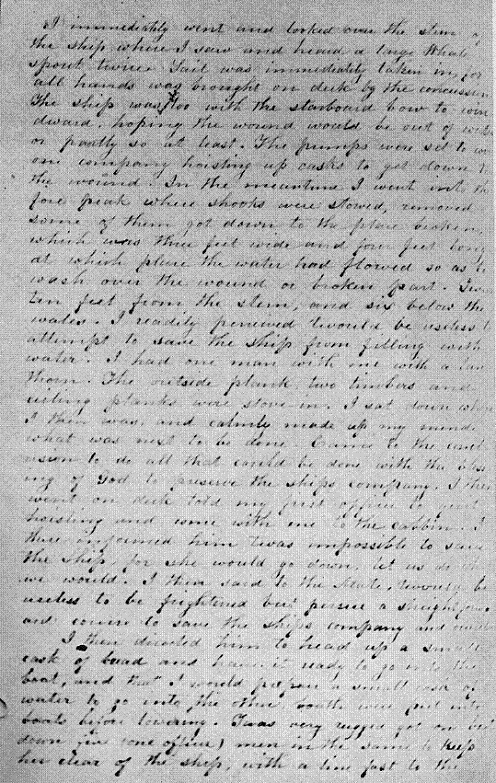 I immediately went and looked over the stern of
the ship where I saw and heard a large Whale
spout twice. Sail was immediately taken in, for
all hands was brought on deck by the concussion
The ship was too with the starboard bow to win
dward, hoping the wound would be out of water
or partly so at least. The pumps were set to work
one company hoisting up casks to get down to
the wound. In the meantime I went into the
fore peak where shooks were stowed, removed
some of them got down to the place broken,
which was three feet wide and four feet long
at which place the water had flowed so as to
wash over the wound or broken part. Twas
ten feet from the stem, and six below the
water. I readily perceived twould be useless to
attempt to save the ship from filling with
water. I had one man with me with a lan
thorn. The outside plank two timbers and
ceiling planks were stove in. I sat down where
I then was, and calmly made up my mind
what was next to be done. Came to the concl
usion to do all that could be done with the bless
ing of God to preserve the ships company. I then
went on deck told my first officer to quit
hoisting and come with me to the cabbin. I
there informed him twas impossible to save
the ship, for she would go down, let us do what
we would. I then said to the Mate, twould be
useless to be frightened but persue a straight forw
ard course to save the ships company and
I then directed him to head up a small
cask of bread and have it ready to go into the
boat, and that I would prepare a small cask of
water to go into the other, both were put into
boats before lowering. Twas very rugged got one boat
down five (one officer) men in the same to keep
her clear of the ship, with a line fast to the